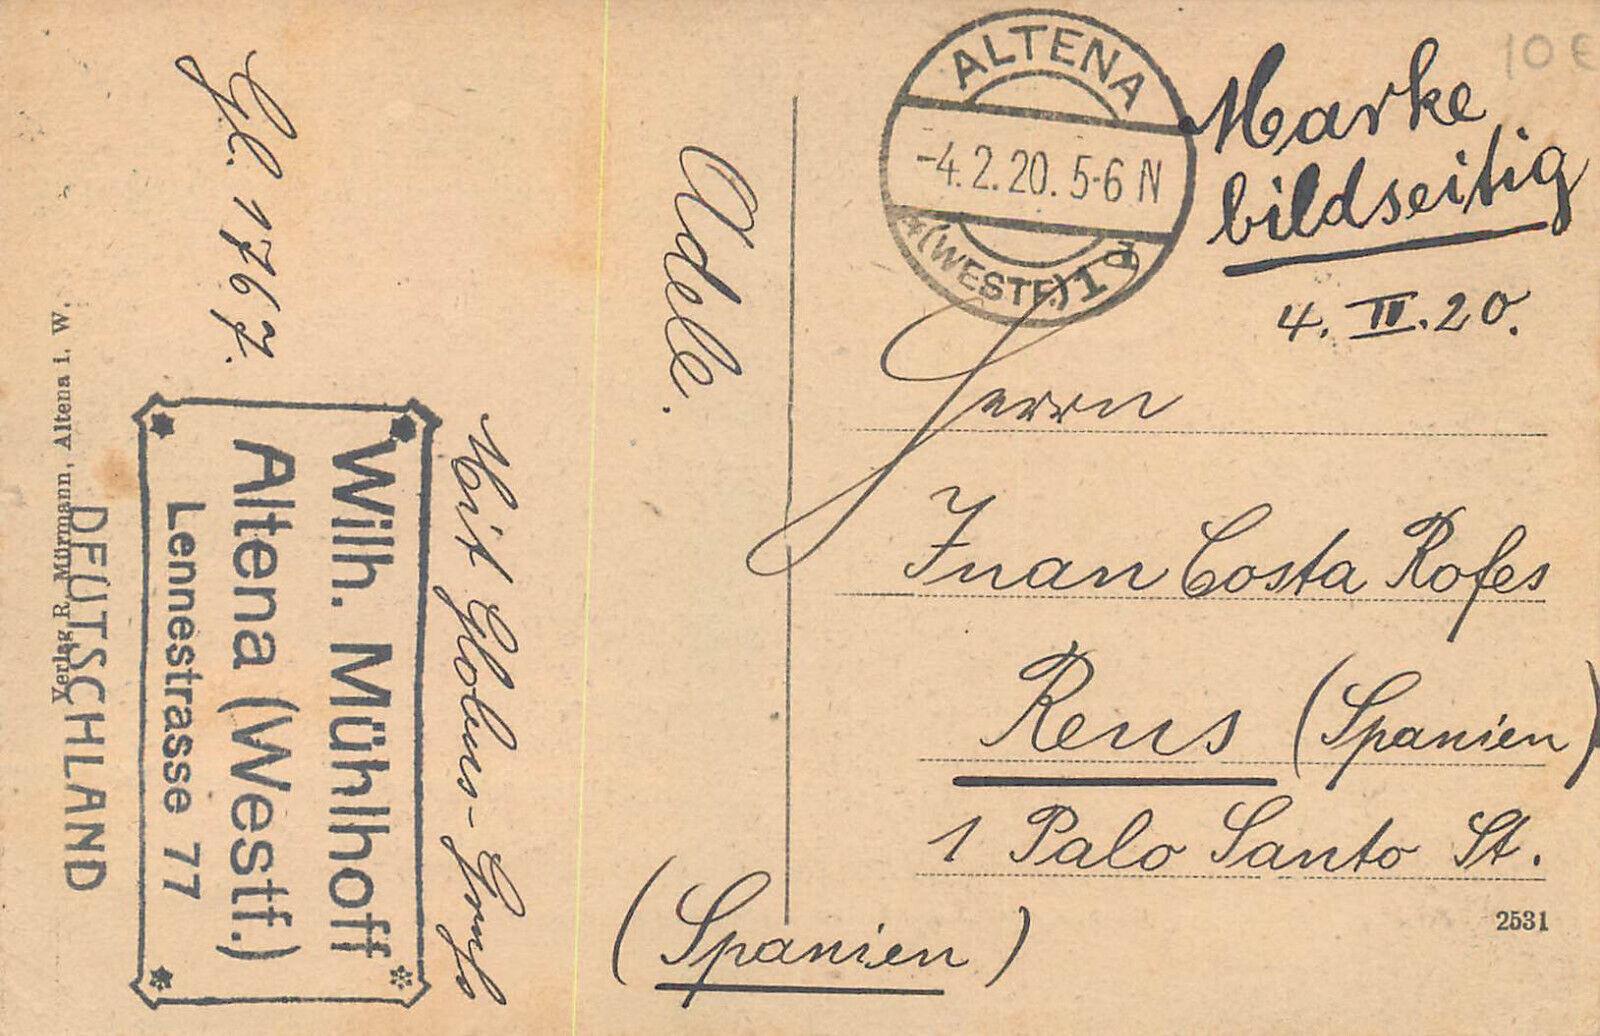 Gl. 1767.
Verlag R. Mürmann, Altena i. W.
DEUTSCHLAND
Wilh. Mühlhoff
Altena (Westf.)
Lennestrasse 77
Mit Globus-Gruß
Adele.
ALTENA
-4.2.20. 5-6 N
*(WESTF.) 1 d
Marke
bildseitig
4. II. 20.
10 €
Herrn
Juan Costa Rofes
Reus (Spanien)
1 Palo Santo St.
(Spanien)
2531